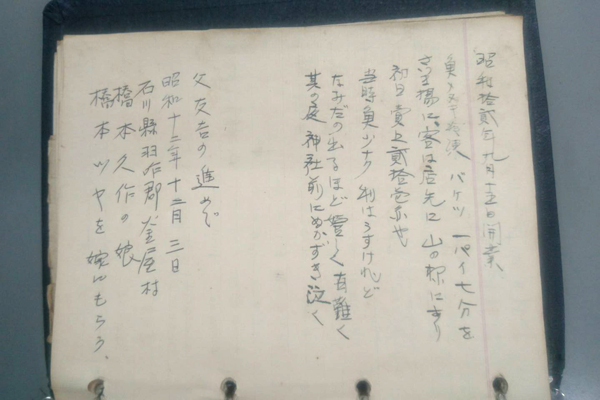 昭和拾貳年九月十五日開業
魚 バケツ 一パイ七分を
客は店先に山の様にあり
初日賣上貳拾壱京也
当時魚少ナク利はうすけれど
なみだの出るほど嬉しく有難く
其の夜神社前にぬかずき泣く
父友吉の進めで
昭和十二年十二月三日
石川縣羽咋郡 村
橋本久作の娘
橋本ツヤを嫁にもらう、